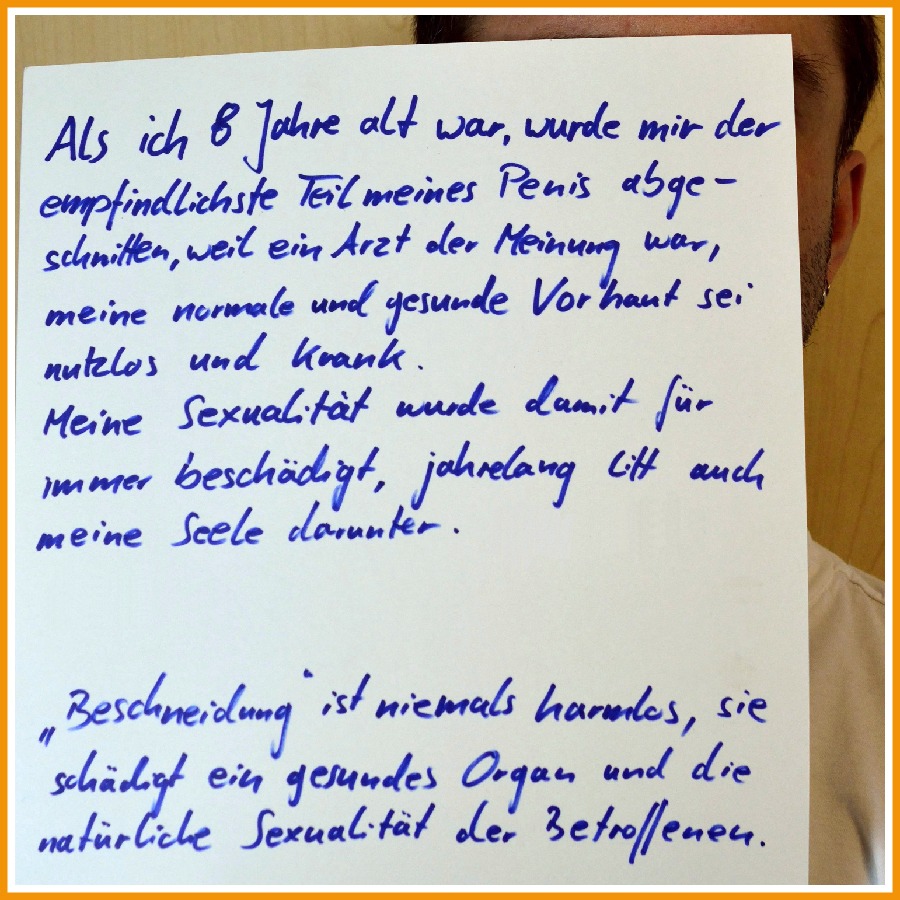 Als ich 8 Jahre alt war, wurde mir der
empfindlichste Teil meines Penis abge-
schnitten, weil ein Arzt der Meinung war,
meine normale und gesunde Vorhaut sei
nutzlos und krank.
Meine Sexualität wurde damit für
immer beschädigt, jahrelang litt auch
meine Seele darunter.
„Beschneidung" ist niemals harmlos, sie
schädigt ein gesundes Organ und die
natürliche Sexualität der Betroffenen.